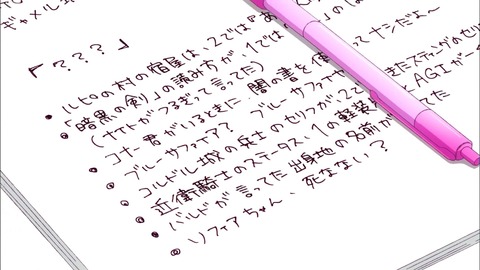 ギャメル
『???』
・ルピの村の宿屋は、2では『あ
・「暗黒の剣」の読み方が1では
(ナイトがつるぎって言ってた)
・コナー君がいるときに 闇の書を
ナシだよ〜
・ブルーサファイア? ブルーサファイヤ
・コルドル城の兵士のセリフが2
スティングのセリ
・近衛騎士のステータス、1の軽装
AGIが
・バルドが言ってた出身地の名前が
てた
・ソフィアちゃん、死なない?